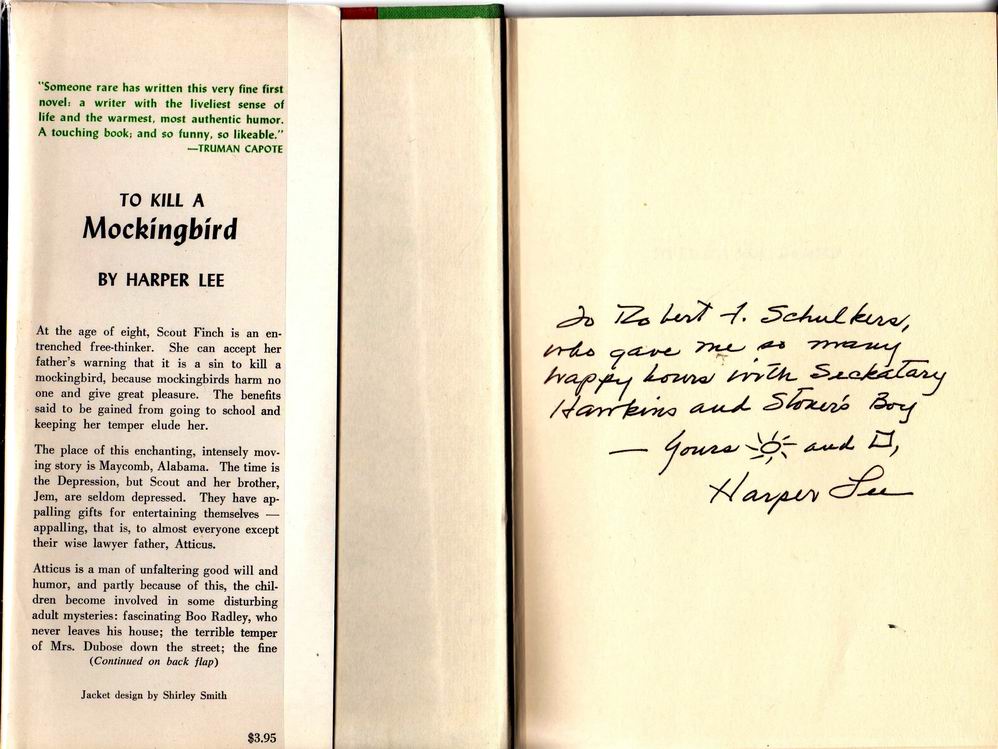 "Someone rare has written this very fine first
novel: a writer with the liveliest sense of
life and the warmest, most authentic humor.
A touching book; and so funny, so likeable."
—TRUMAN CAPOTE
TO KILL A
Mockingbird
BY HARPER LEE
At the age of eight, Scout Finch is an en-
trenched free-thinker. She can accept her
father's warning that it is a sin to kill a
mockingbird, because mockingbirds harm no
one and give great pleasure. The benefits
said to be gained from going to school and
keeping her temper elude her.
The place of this enchanting, intensely mov-
ing story is Maycomb, Alabama. The time is
the Depression, but Scout and her brother,
Jem, are seldom depressed. They have ap-
palling gifts for entertaining themselves —
appalling, that is, to almost everyone except
their wise lawyer father, Atticus.
Atticus is a man of unfaltering good will and
humor, and partly because of this, the chil-
dren become involved in some disturbing
adult mysteries: fascinating Boo Radley, who
never leaves his house; the terrible temper
of Mrs. Dubose down the street; the fine
(Continued on back flap)
Jacket design by Shirley Smith
$3.95
To Robert F. Schulkers,
who gave me so many
happy hours with Seckatary
Hawkins and Stoner's Boy
— Yours and ,
Harper Lee